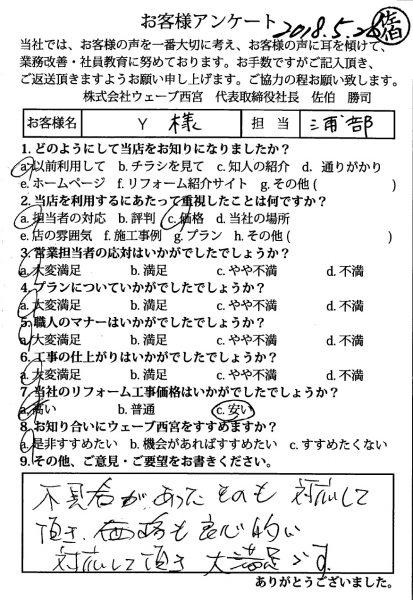 お客様アンケート 2018.5.28 佐伯
当社では、お客様の声を一番大切に考え、お客様の声に耳を傾けて、
業務改善・社員教育に努めております。お手数ですがご記入頂き、
ご返送頂きますようお願い申し上げます。ご協力の程お願い致します。
株式会社ウェーブ西宮 代表取締役社長 佐伯 勝司
お客様名 Y 様 担当 浦部
1. どのようにして当店をお知りになりましたか?
a. 以前利用して b. チラシを見て c. 知人の紹介 d. 通りがかり
e. ホームページ f. リフォーム紹介サイト g. その他( )
2. 当店を利用するにあたって重視したことは何ですか?
a. 担当者の対応 b. 評判 c. 価格 d. 当社の場所
e. 店の雰囲気 f. 施工事例 g. プラン h. その他( )
3. 営業担当者の応対はいかがでしたでしょうか?
a. 大変満足 b. 満足 c. やや不満 d. 不満
4. プランについていかがでしたでしょうか?
a. 大変満足 b. 満足 c. やや不満 d. 不満
5. 職人のマナーはいかがでしたでしょうか?
a. 大変満足 b. 満足 c. やや不満 d. 不満
6. 工事の仕上がりはいかがでしたでしょうか?
a. 大変満足 b. 満足 c. やや不満 d. 不満
7. 当社のリフォーム工事価格はいかがでしたでしょうか?
a. 高い b. 普通 c. 安い
8. お知り合いにウェーブ西宮をすすめますか?
a. 是非すすめたい b. 機会があればすすめたい c. すすめたくない
9. その他、ご意見・ご要望をお書きください。
不具合があったものも 対応して
頂き、価格も良心的い
対応して頂き 大満足です。
ありがとうございました。